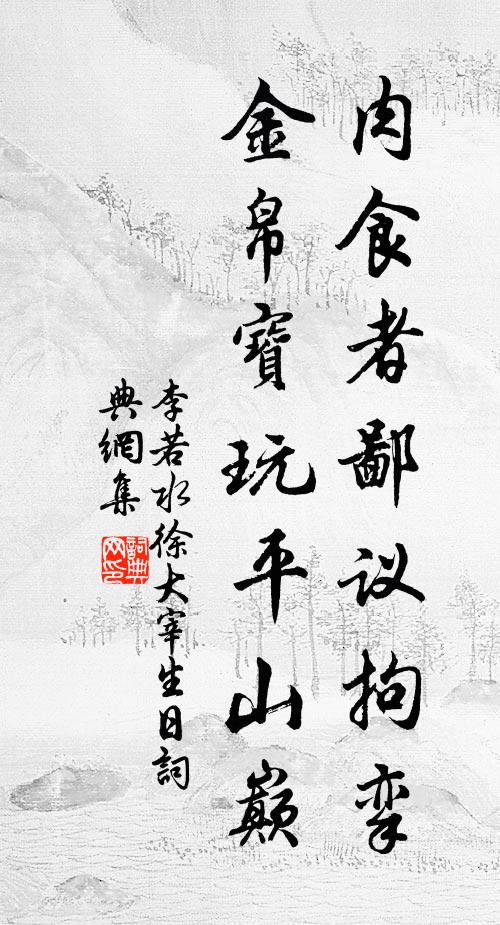 肉食者鄙议拘挛
金帛寶玩平山巔
李若水徐大宰生日詞
典網集
詞典网印